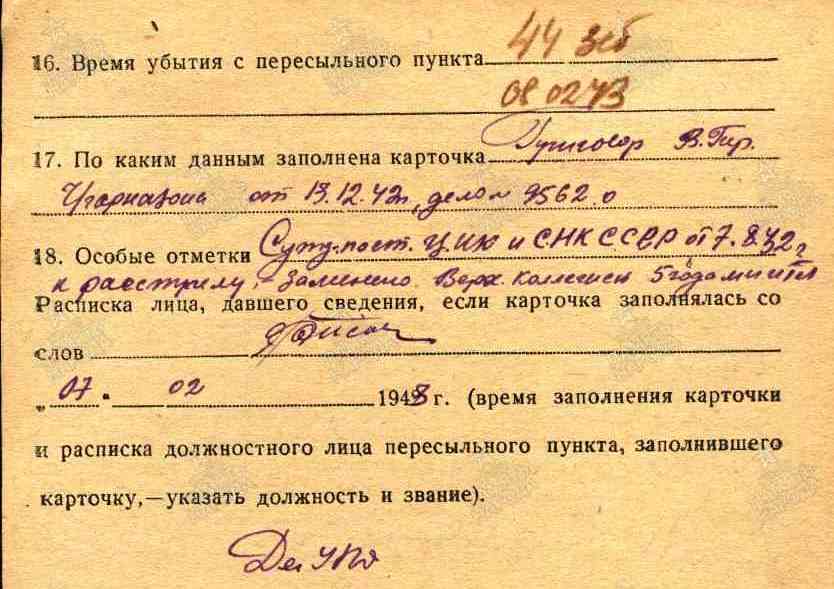 44 зсб
16. Время убытия с пересыльного пункта
080243
17. По каким данным заполнена карточка Приговор В.Тир.
от 13.12.42г, дело № 9562.о
18. Особые отметки Сужд. пост. ЦИК и СНК СССР от 7.8.32г
к расстрелу, - Заменено Верх. Колегией 5 годами ИТЛ
Расписка лица, давшего сведения, если карточка заполнялась со
слов
„ 07 " 02 1943 г. (время заполнения карточки
и расписка должностного лица пересыльного пункта, заполнившего
карточку,—указать должность и звание).